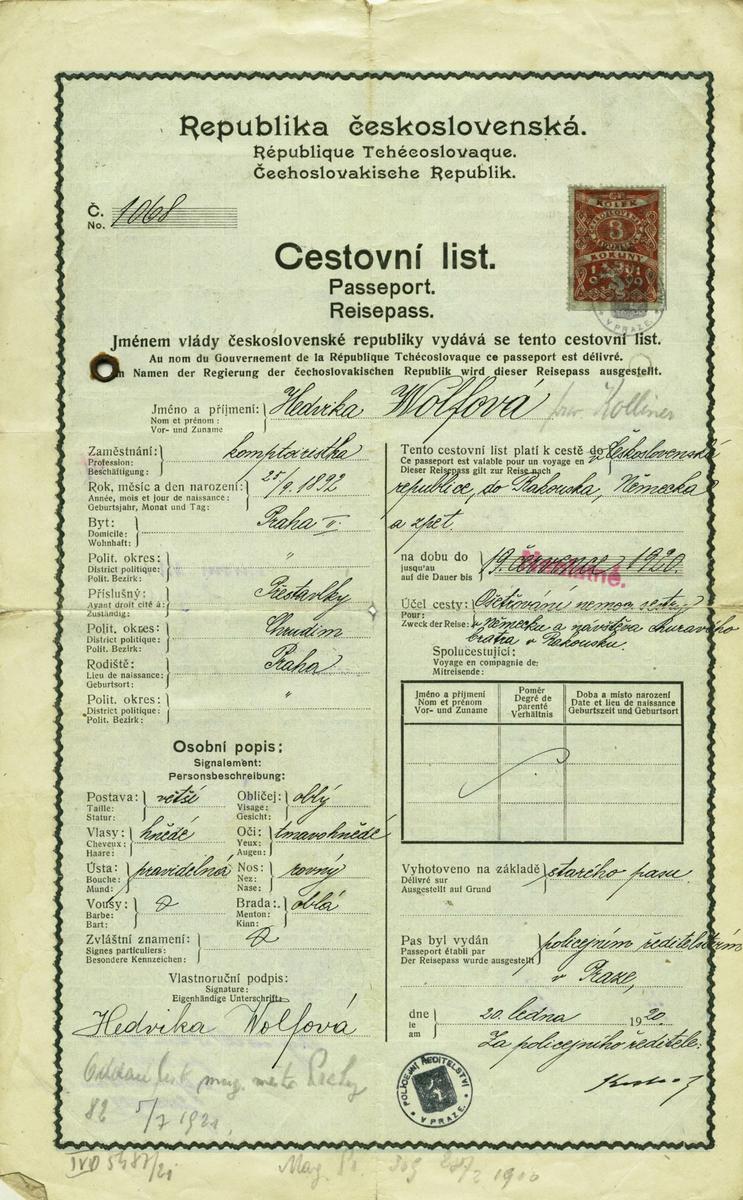 Republika československá.
République Tchécoslovaque.
Čechoslovakische Republik.
Č. 1068
No.
KOLEK
3
KORUNY
1919
V PRAZE
Cestovní list.
Passeport.
Reisepass.
Jménem vlády československé republiky vydává se tento cestovní list.
Au nom du Gouvernement de la République Tchécoslovaque ce passeport est délivré.
m Namen der Regierung der čechoslovakischen Republik wird dieser Reisepass ausgestellt.
Jméno a příjmení: Hedvika Wolfová prov. Kolliner
Nom et prénom:
Vor- und Zuname
Zaměstnání: komptoiristka
Profession:
Beschäftigung:
Rok, měsíc a den narození: 25/9. 1892
Année, mois et jour de naissance:
Geburtsjahr, Monat und Tag:
Byt: Praha II.
Domicile:
Wohnhaft:
Polit. okres: "
District politique:
Polit. Bezirk:
Příslušný: Přestavlky
Ayant droit cité à:
Zuständig:
Polit. okres: Chrudim
District politique:
Polit. Bezirk:
Rodiště: Praha
Lieu de naissance:
Geburtsort:
Polit. okres: "
District politique:
Polit. Bezirk:
Osobní popis:
Signalement:
Personsbeschreibung:
Postava: větší Obličej: oblý
Taille: Visage:
Statur: Gesicht:
Vlasy: hnědé Oči: tmavohnědé
Cheveux: Yeux:
Haare: Augen:
Ústa: pravidelná Nos: rovný
Bouche: Nez:
Mund: Nase:
Vousy: Brada: oblá
Barbe: Menton:
Bart: Kinn:
Zvláštní znamení:
Signes particuliers:
Besondere Kennzeichen:
Vlastnoruční podpis:
Signature:
Eigenhändige Unterschrift:
Hedvika Wolfová
Tento cestovní list platí k cestě do v Československá
Ce passeport est valable pour un voyage en
Dieser Reisepass gilt zur Reise nach
republice, do Rakouska, Německa
a zpět
na dobu do 19. července 1920.
jusqu'au
auf die Dauer bis
Neplatné.
Účel cesty: Ošetřování nemoc. sestry
Pour: v Německu a návštěva churavého
Zweck der Reise: bratra v Rakousku.
Spolucestující:
Voyage en compagnie de:
Mitreisende:
Jméno a příjmení Poměr Doba a místo narození
Nom et prénom Degré de parenté Date et lieu de naissance
Vor- und Zuname Verhältnis Geburtszeit und Geburtsort
Vyhotoveno na základě starého pasu
Délivré sur
Ausgestellt auf Grund
Pas byl vydán policejním ředitelstvím
Passeport établi par
Der Reisepass wurde ausgestellt
v Praze,
dne 20. ledna 1920
le
am
Za policejního ředitele:
POLICEJNÍ ŘEDITELSTVÍ
V PRAZE
82 5/7 1921.
IVD 5487/21